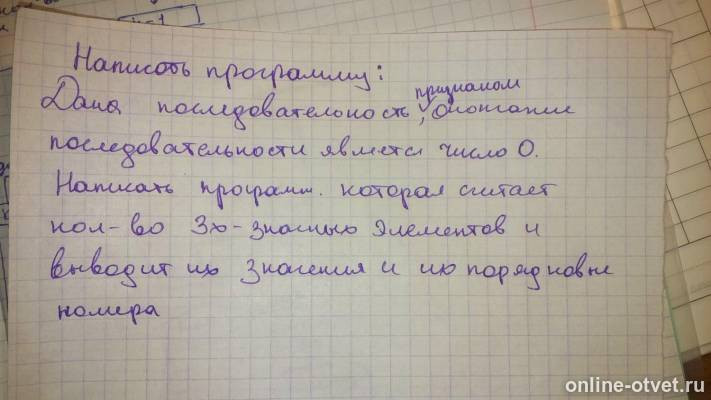 Написать программу:
Дана последовательность, признаком окончание
последовательности является число 0.
Написать программ. которая считает
кол-во 3х-значных элементов и
выводит их значения и их порядковые
номера
online-otvet.ru